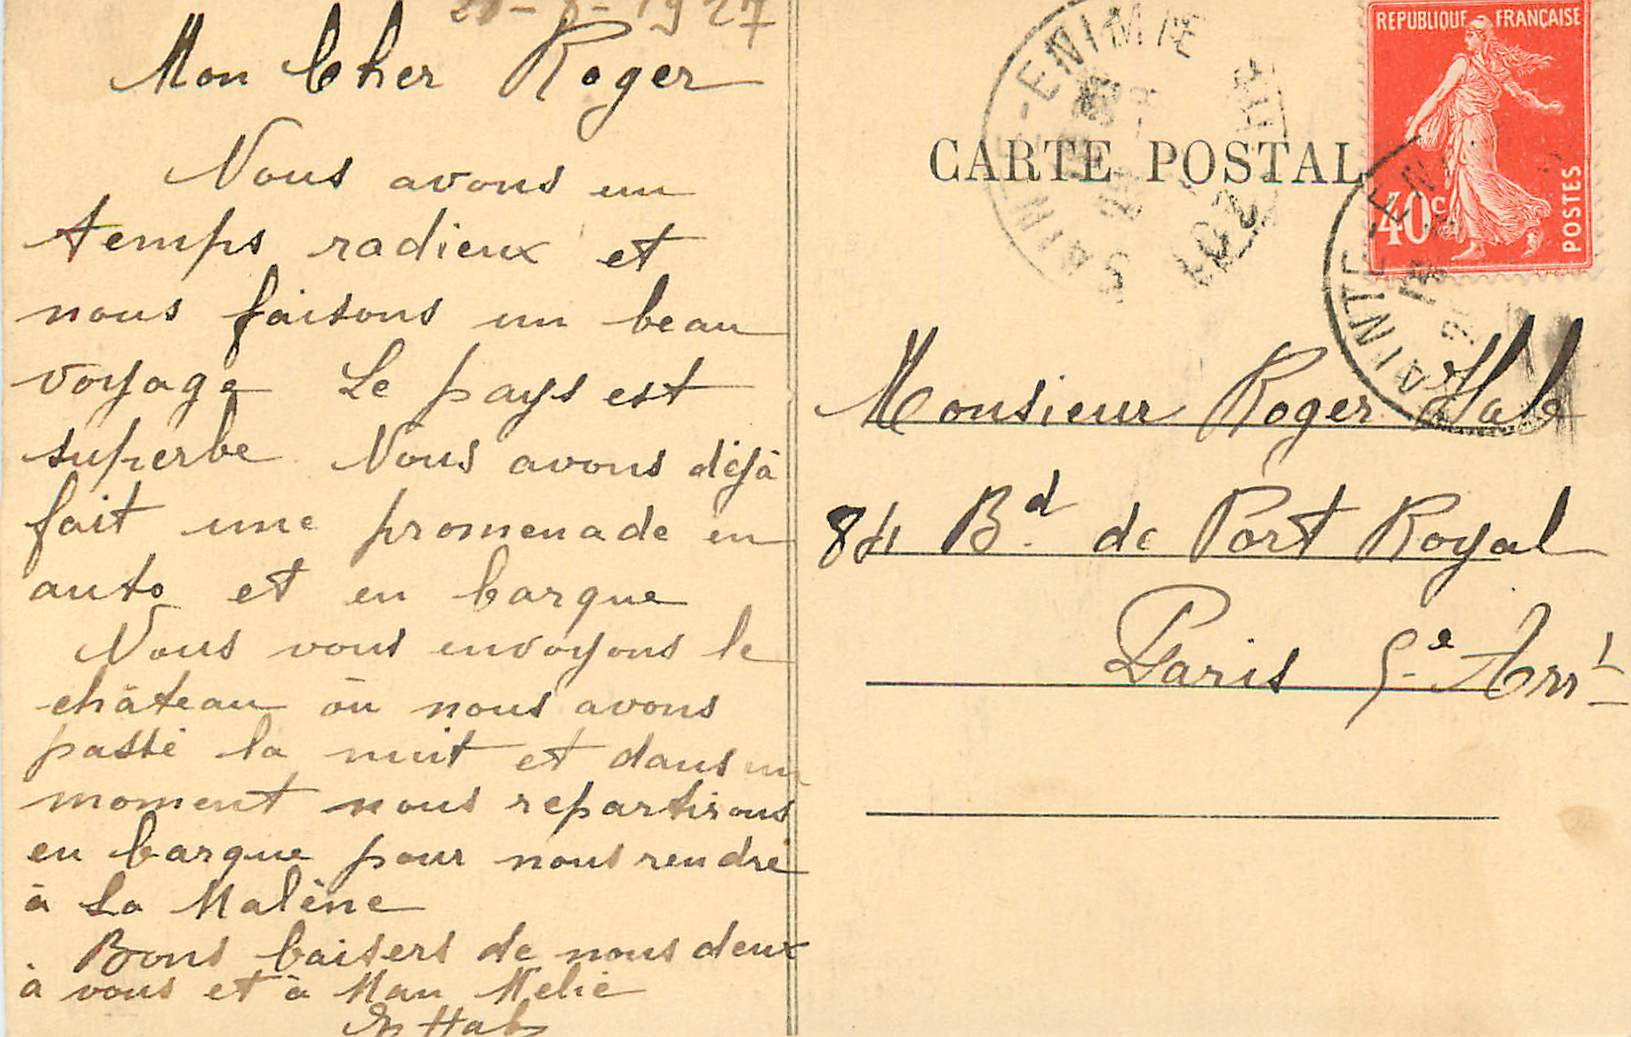 1927
Mon Cher Roger
Nous avons un
temps radieux et
nous faisons un beau
voyage Le pays est
superbe Nous avons déjà
fait une promenade en
auto et en barque
Nous vous envoyons le
château où nous avons
passé la nuit et dans un
moment nous repartirons
en barque pour nous rendre
à La Malène
Bons baisers de nous deux
à vous et à Man Melie
Hab
CARTE POSTALE
REPUBLIQUE FRANÇAISE
40c
POSTES
SAINTE-ENIMIE
SAINTE-ENI
Monsieur Roger Hab
84 Bd. de Port Royal
Paris 5e Arrt